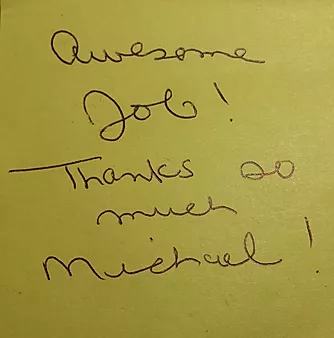 Awesome
Job!
Thanks so
much
Michael!